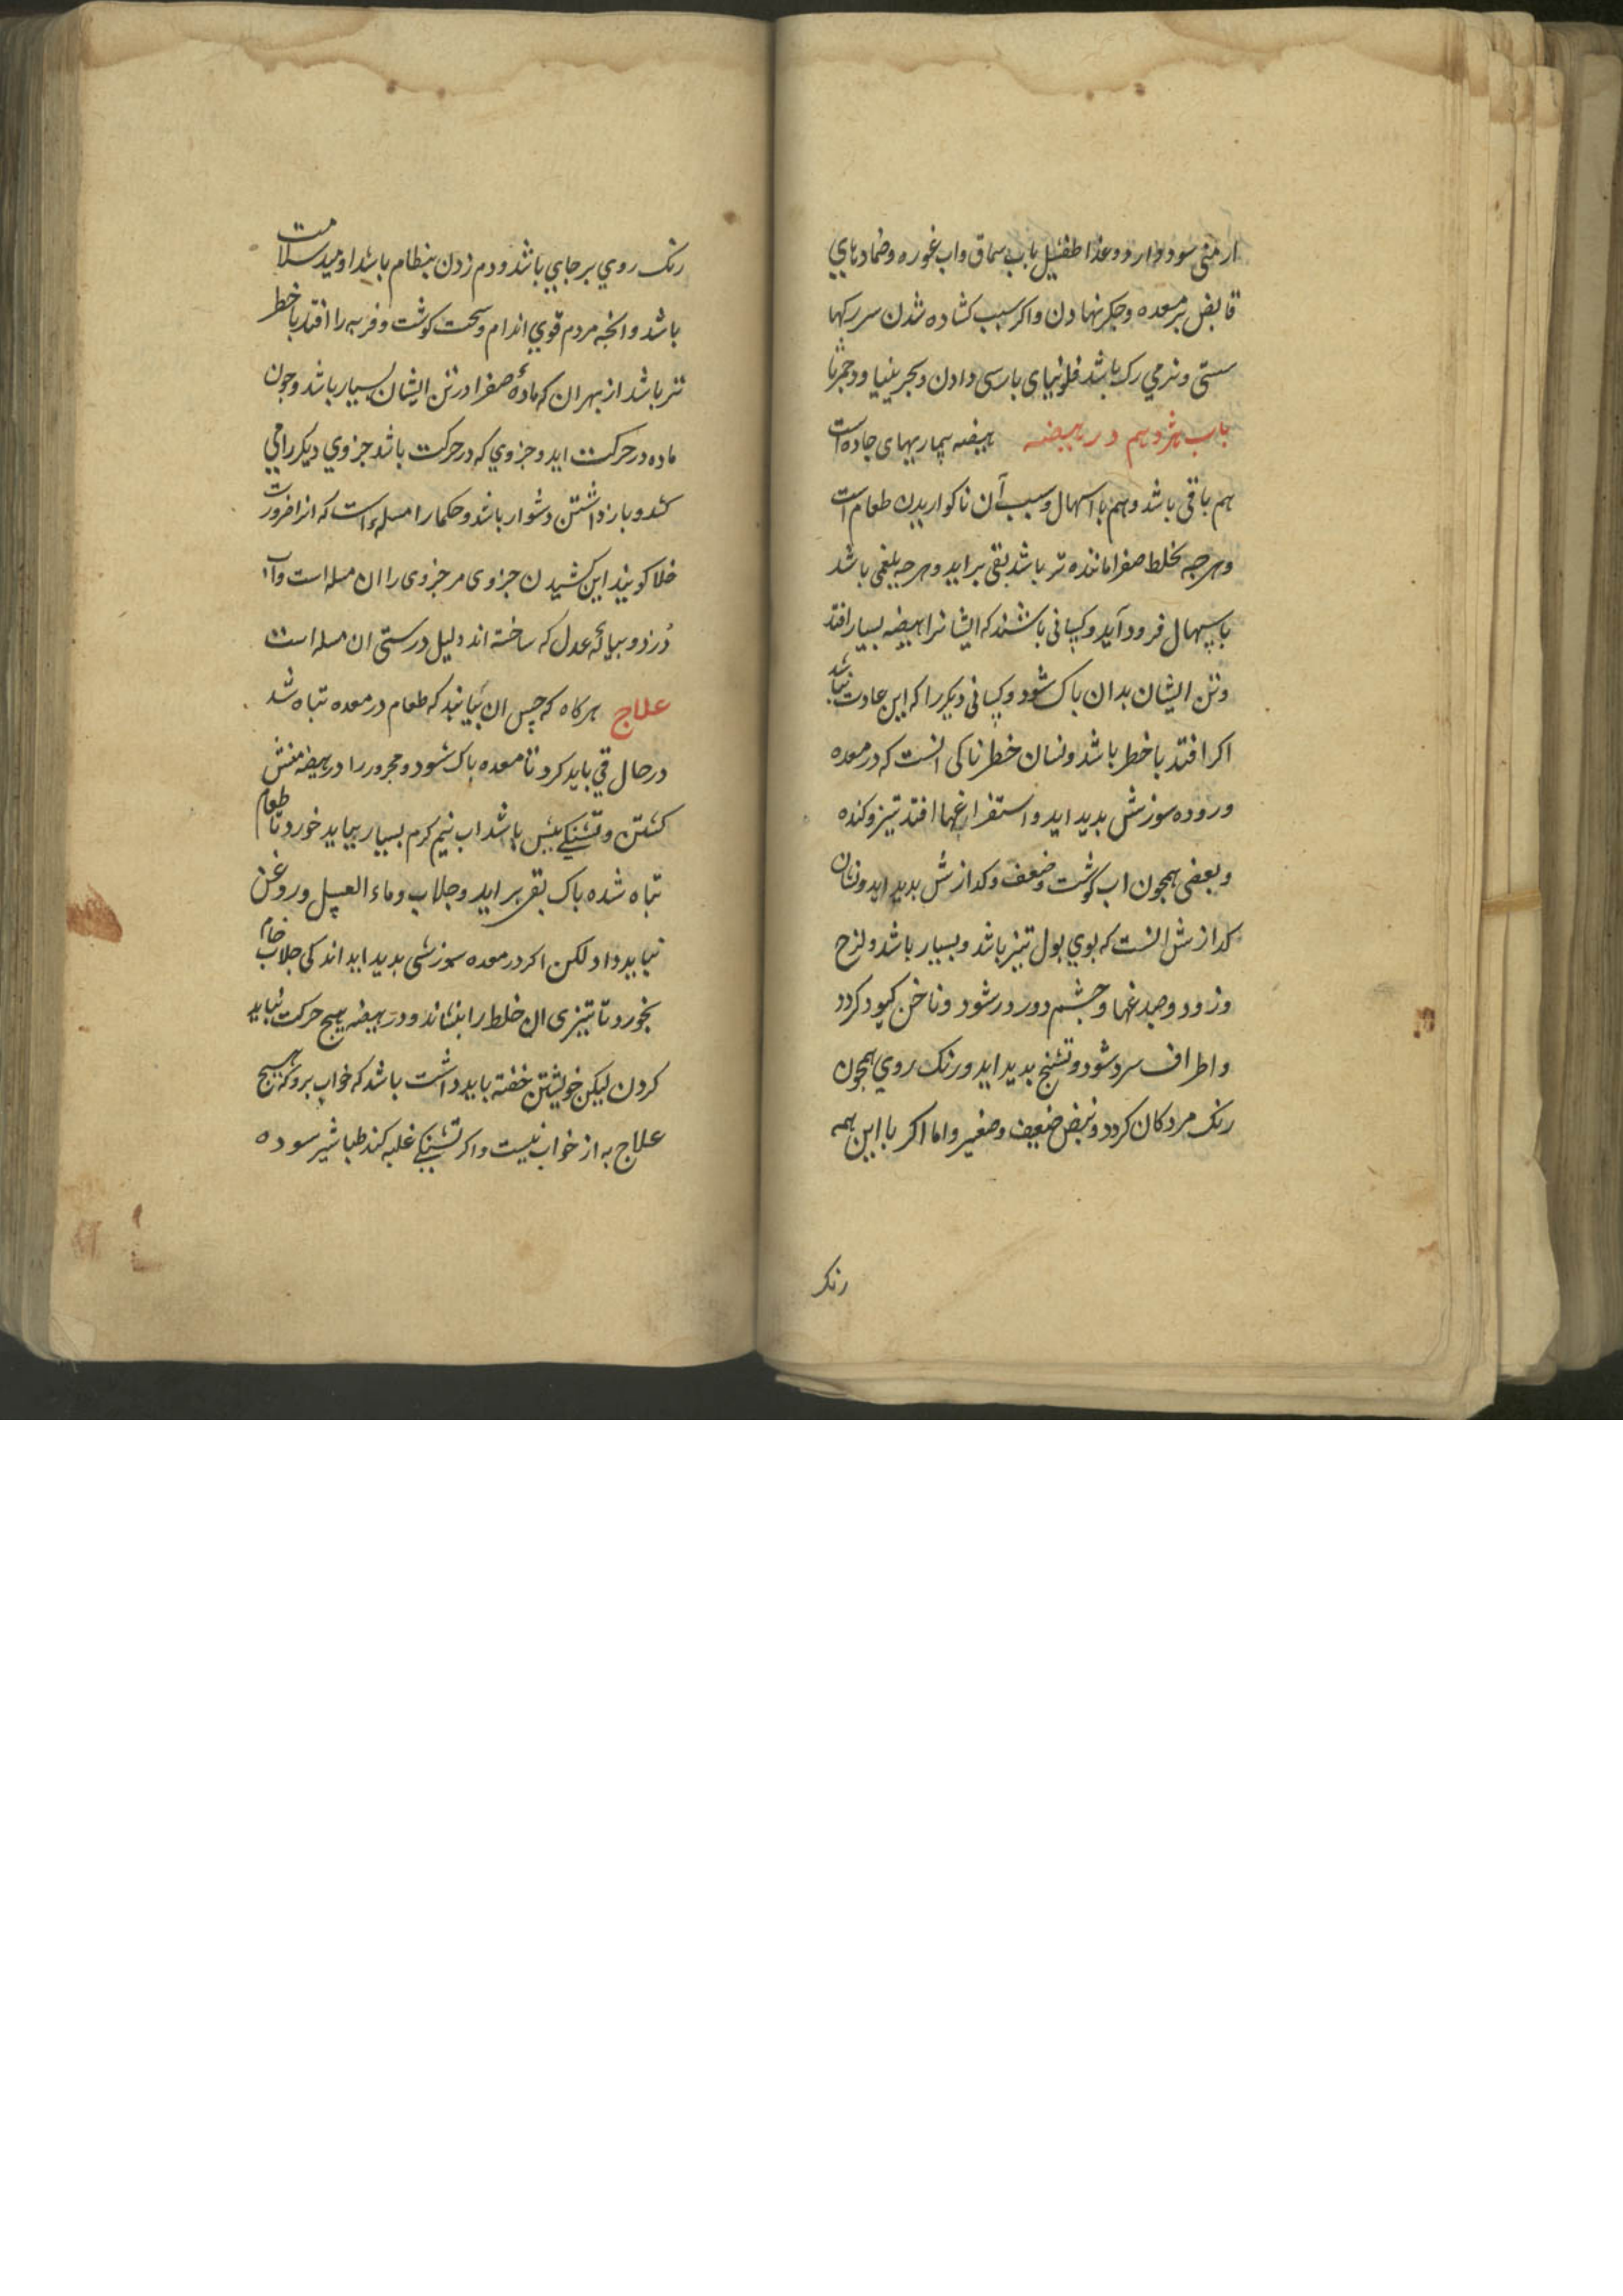 ارمنی سود دارد و غذا طفشیل باب سماق و اب غوره و ضمادهاي
قابض بر معده و جکر نهادن و اکر سبب کشاده شدن سر رکها
سستی و نرمي رک باشد فلونیای بارسی دادن و بحرینیا و دحمرثا
باب هژدهم در هیضه هیضه بیماریهای حاده است
هم باقی باشد و هم با اسهال و سبب آن ناکواریدن طعام است
و هرجه بخلط صفرا ماننده تر باشد بقی براید و هرجه بلغمی باشد
باسهال فرود آید و کسانی باشند که ایشانرا هیضه بسیار افتد
و تن ایشان بدان باک شود و کسانی دیکر را که این عادت نباشد
اکر افتد با خطر باشد و نشان خطرناکی انست که در معده
و روده سوزش بدید اید و استفراغها افتد تیز و کنده
و بعضی همجون اب کوشت و ضعف و کدازش بدید اید و نشان
کدازش انست که بوي بول تیز باشد و بسیار باشد و لزج
و زود و صدغها و جشم دور در شود و ناخن کبود کردد
و اطراف سرد شود و تشنج بدید اید و رنک روي همجون
رنک مردکان کردد و نبض ضعیف و صغیر و اما اکر با این همه
رنک
رنک روي بر جايي باشد و دم زدن بنظام باشد اومید سلامت
باشد و انجه مردم قوي اندام و سخت کوشت و فربه را افتد با خطر
تر باشد از بهر ان که مادهٔ صفرا در تن ایشان بسیار باشد و جون
ماده در حرکت اید و جزوي که در حرکت باشد جزوي دیکر را می
کشد و باز داشتن دشوار باشد و حکما را مسلهء است که انرا ضرورت
خلا کویند این کشیدن جزوی مر جزوی را ان مسله است و آب
دزد و بیمائه عدل که ساخته اند دلیل درستی ان مسله است
علاج هرکاه که حس ان بیابند که طعام در معده تباه شد
در حال قي باید کرد تا معده باک شود و محرور را در هیضه منش
کشتن و تشنکی بیش باشد اب نیم کرم بسیار بباید خورد تا طعام
تباه شده باک بقی براید و جلاب و ماء العسل و روغن
نباید داد لکن اکر در معده سوزشی بدید اید اندکی جلاب خام
بخورد تا تیزی ان خلط را بنشاند و در هیضه هیج حرکت نباید
کردن لیکن خویشتن خفته باید داشت باشد که خواب برد که هیج
علاج به از خواب نیست و اکر تشنکی غلبه کند طباشیر سوده